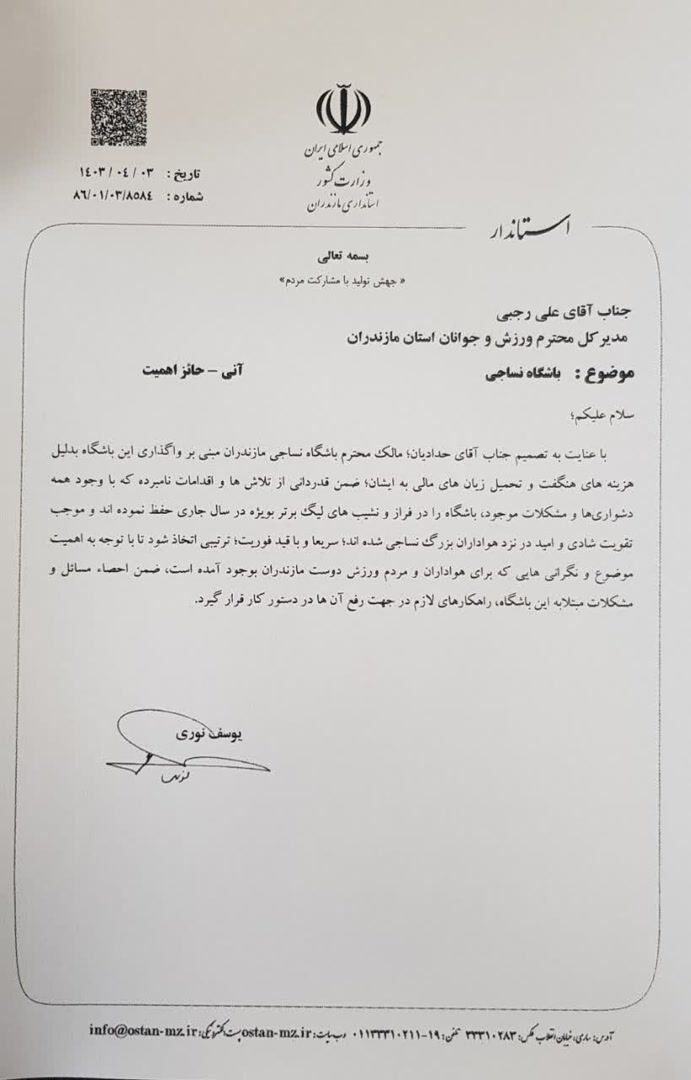 جمهوری اسلامی ایران
وزارت کشور
استانداری مازندران
تاریخ : ۱٤۰۳ / ۰٤ / ۰۳
شماره : ۸٦/۰۱/۰۳/۸۵۸٤
استاندار
بسمه تعالی
« جهش تولید با مشارکت مردم»
جناب آقای علی رجبی
مدیر کل محترم ورزش و جوانان استان مازندران
موضوع : باشگاه نساجی آنی – حائز اهمیت
سلام علیکم؛
با عنایت به تصمیم جناب آقای حدادیان؛ مالک محترم باشگاه نساجی مازندران مبنی بر واگذاری این باشگاه بدلیل
هزینه های هنگفت و تحمیل زیان های مالی به ایشان؛ ضمن قدردانی از تلاش ها و اقدامات نامبرده که با وجود همه
دشواری‌ها و مشکلات موجود، باشگاه را در فراز و نشیب های لیگ برتر بویژه در سال جاری حفظ نموده اند و موجب
تقویت شادی و امید در نزد هواداران بزرگ نساجی شده اند؛ سریعا و با قید فوریت؛ ترتیبی اتخاذ شود تا با توجه به اهمیت
موضوع و نگرانی هایی که برای هواداران و مردم ورزش دوست مازندران بوجود آمده است، ضمن احصاء مسائل و
مشکلات مبتلابه این باشگاه، راهکارهای لازم در جهت رفع آن ها در دستور کار قرار گیرد.
یوسف نوری
آدرس: ساری، خیابان انقلاب فکس: ۳۳۳۱۰۲۸۳ تلفن: ۱۹-۰۱۱۳۳۳۱۰۲۱۱ وب سایت: ostan-mz.ir پست الکترونیکی: info@ostan-mz.ir